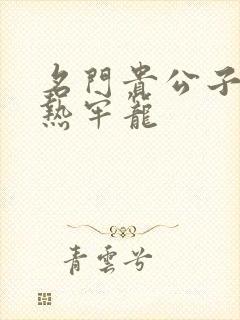 名門貴公子
熱牢籠
青雲兮